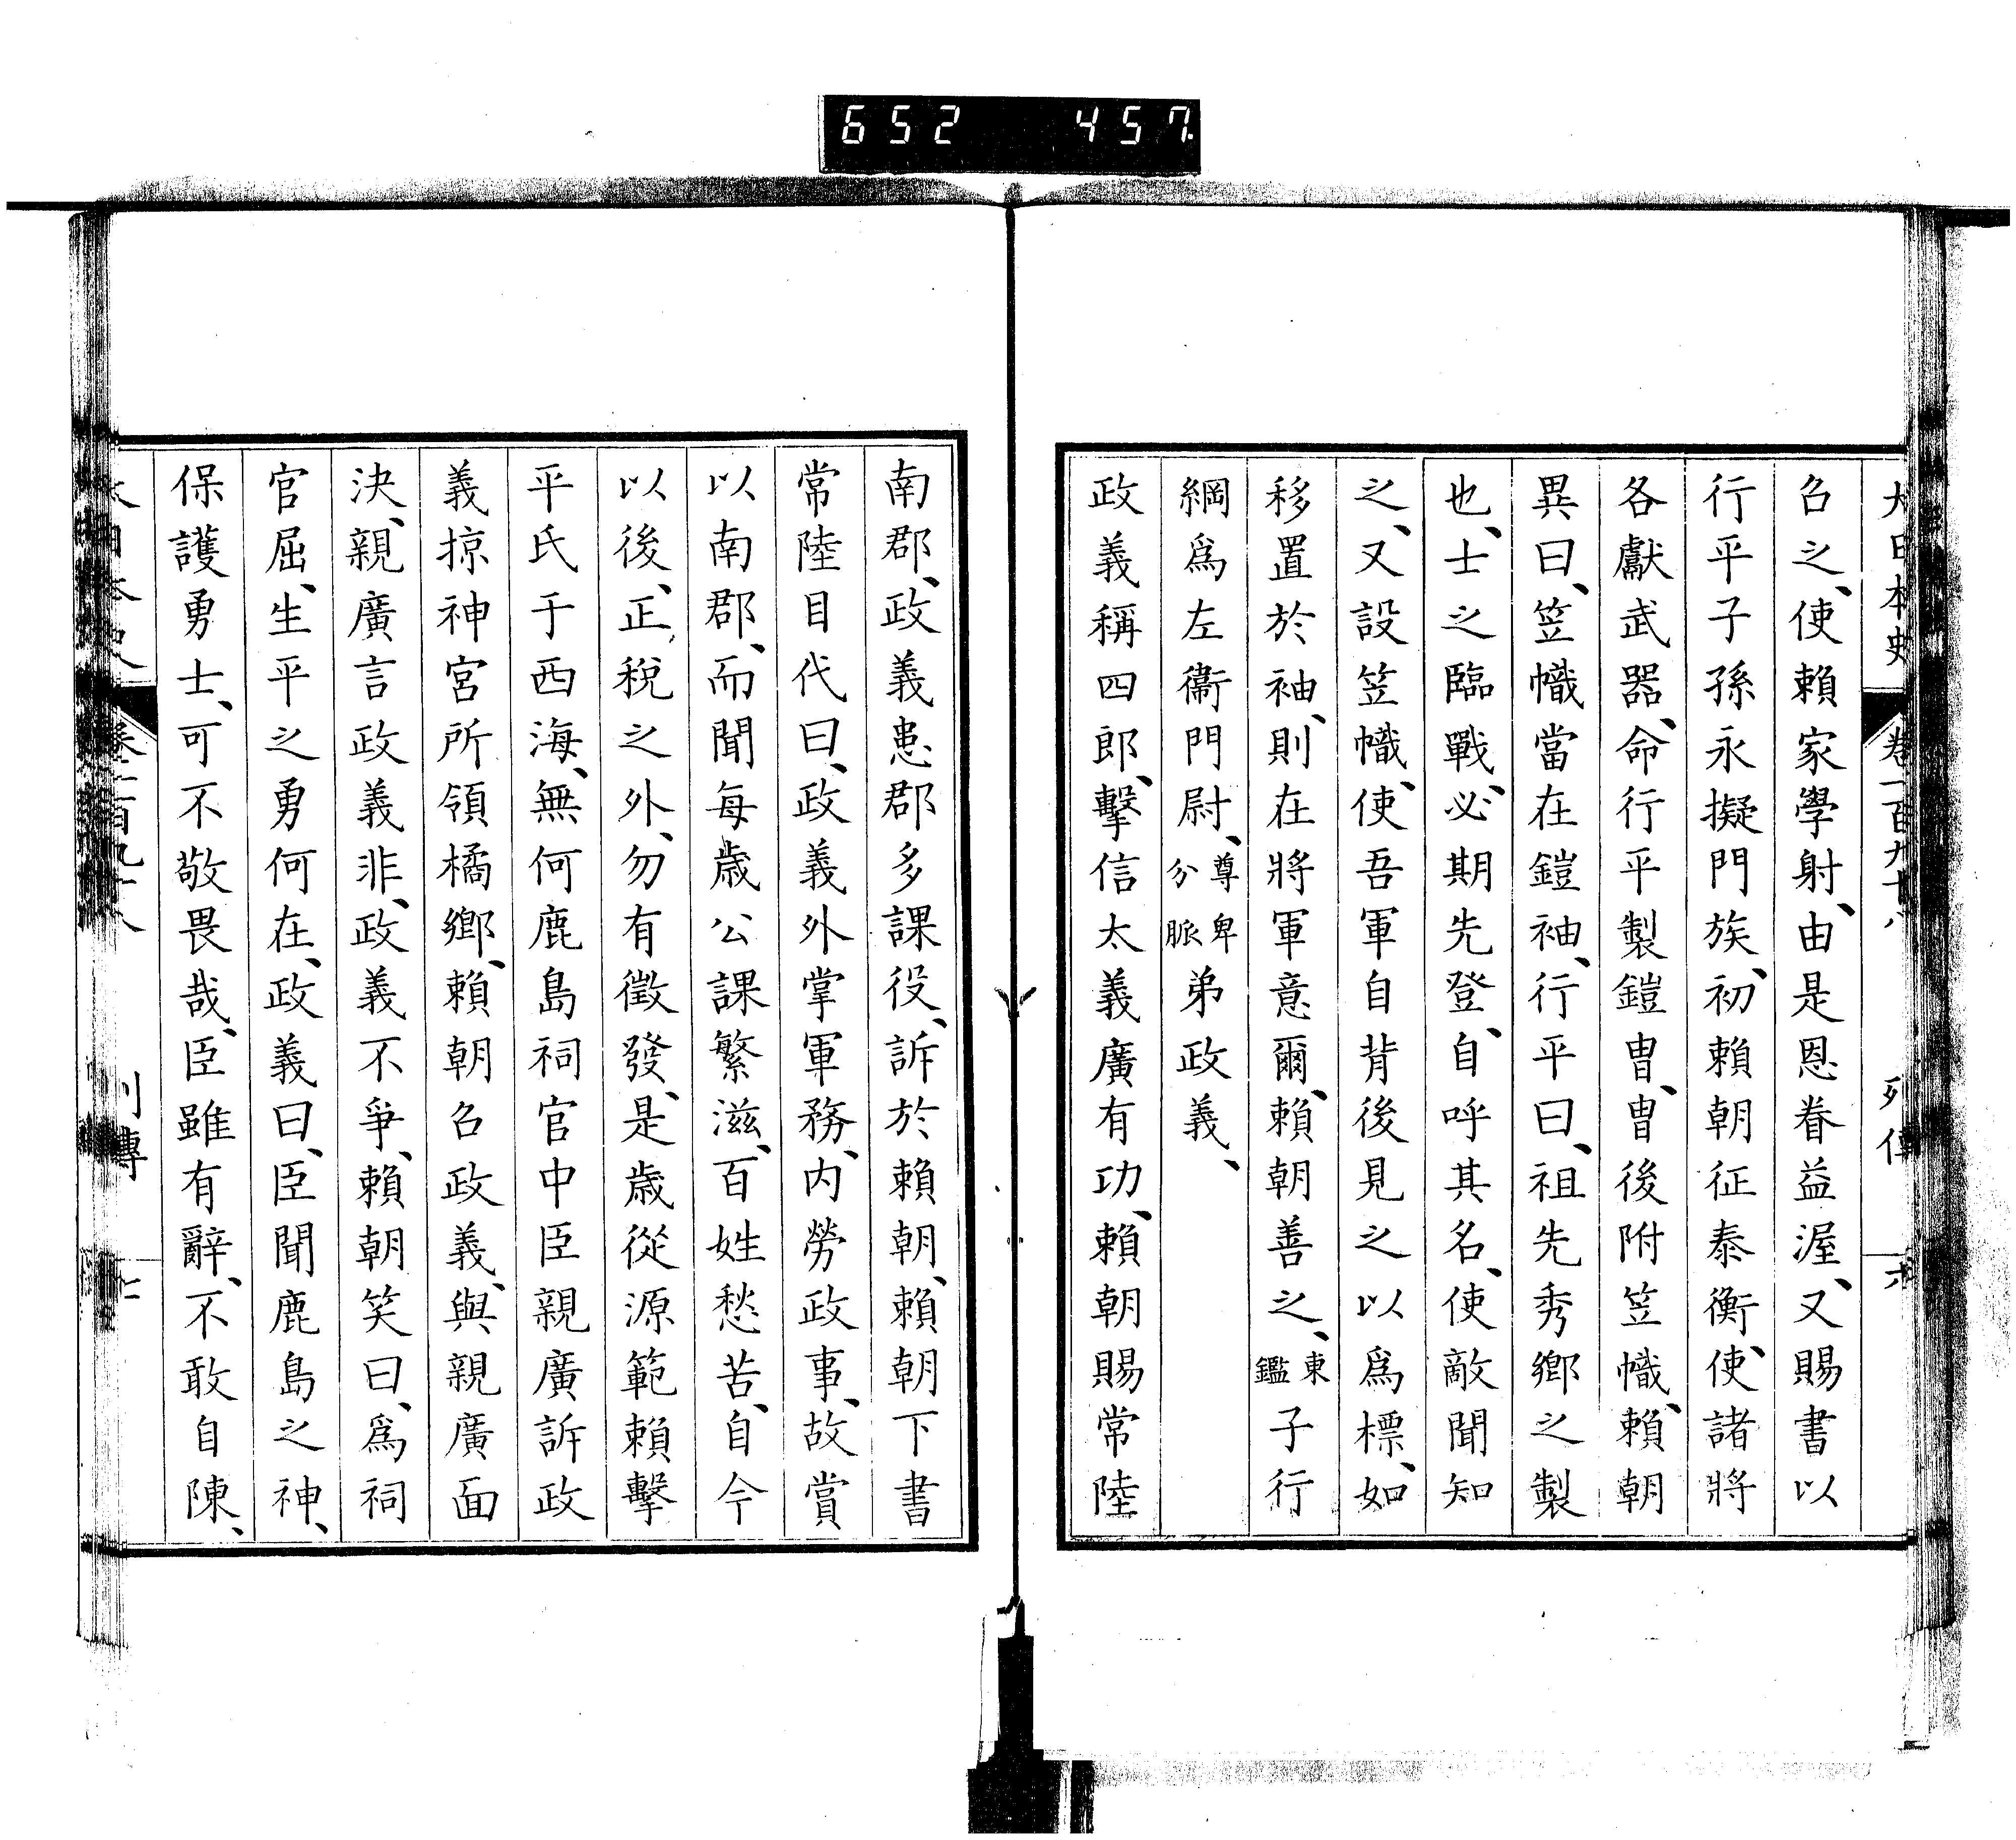 652 457
大日本史 卷一百九十八 列傳 六
召之、使賴家學射、由是恩眷益渥、又賜書以
行平子孫永擬門族、初賴朝征泰衡、使諸將
各獻武器、命行平製鎧冑、冑後附笠幟、賴朝
異曰、笠幟當在鎧袖、行平曰、祖先秀鄉之製
也、士之臨戰、必期先登、自呼其名、使敵聞知
之、又設笠幟、使吾軍自背後見之以爲標、如
移置於袖、則在將軍意爾、賴朝善之、東鑑子行
綱爲左衞門尉、尊卑分脈弟政義、
政義稱四郎、擊信太義廣有功、賴朝賜常陸
南郡、政義患郡多課役、訴於賴朝、賴朝下書
常陸目代曰、政義外掌軍務、内勞政事、故賞
以南郡、而聞每歲公課繁滋、百姓愁苦、自今
以後、正稅之外、勿有徵發、是歲從源範賴擊
平氏于西海、無何鹿島祠官中臣親廣訴政
義掠神宮所領橘鄉、賴朝召政義、與親廣面
決、親廣言政義非、政義不爭、賴朝笑曰、爲祠
官屈、生平之勇何在、政義曰、臣聞鹿島之神、
保護勇士、可不敬畏哉、臣雖有辭、不敢自陳、